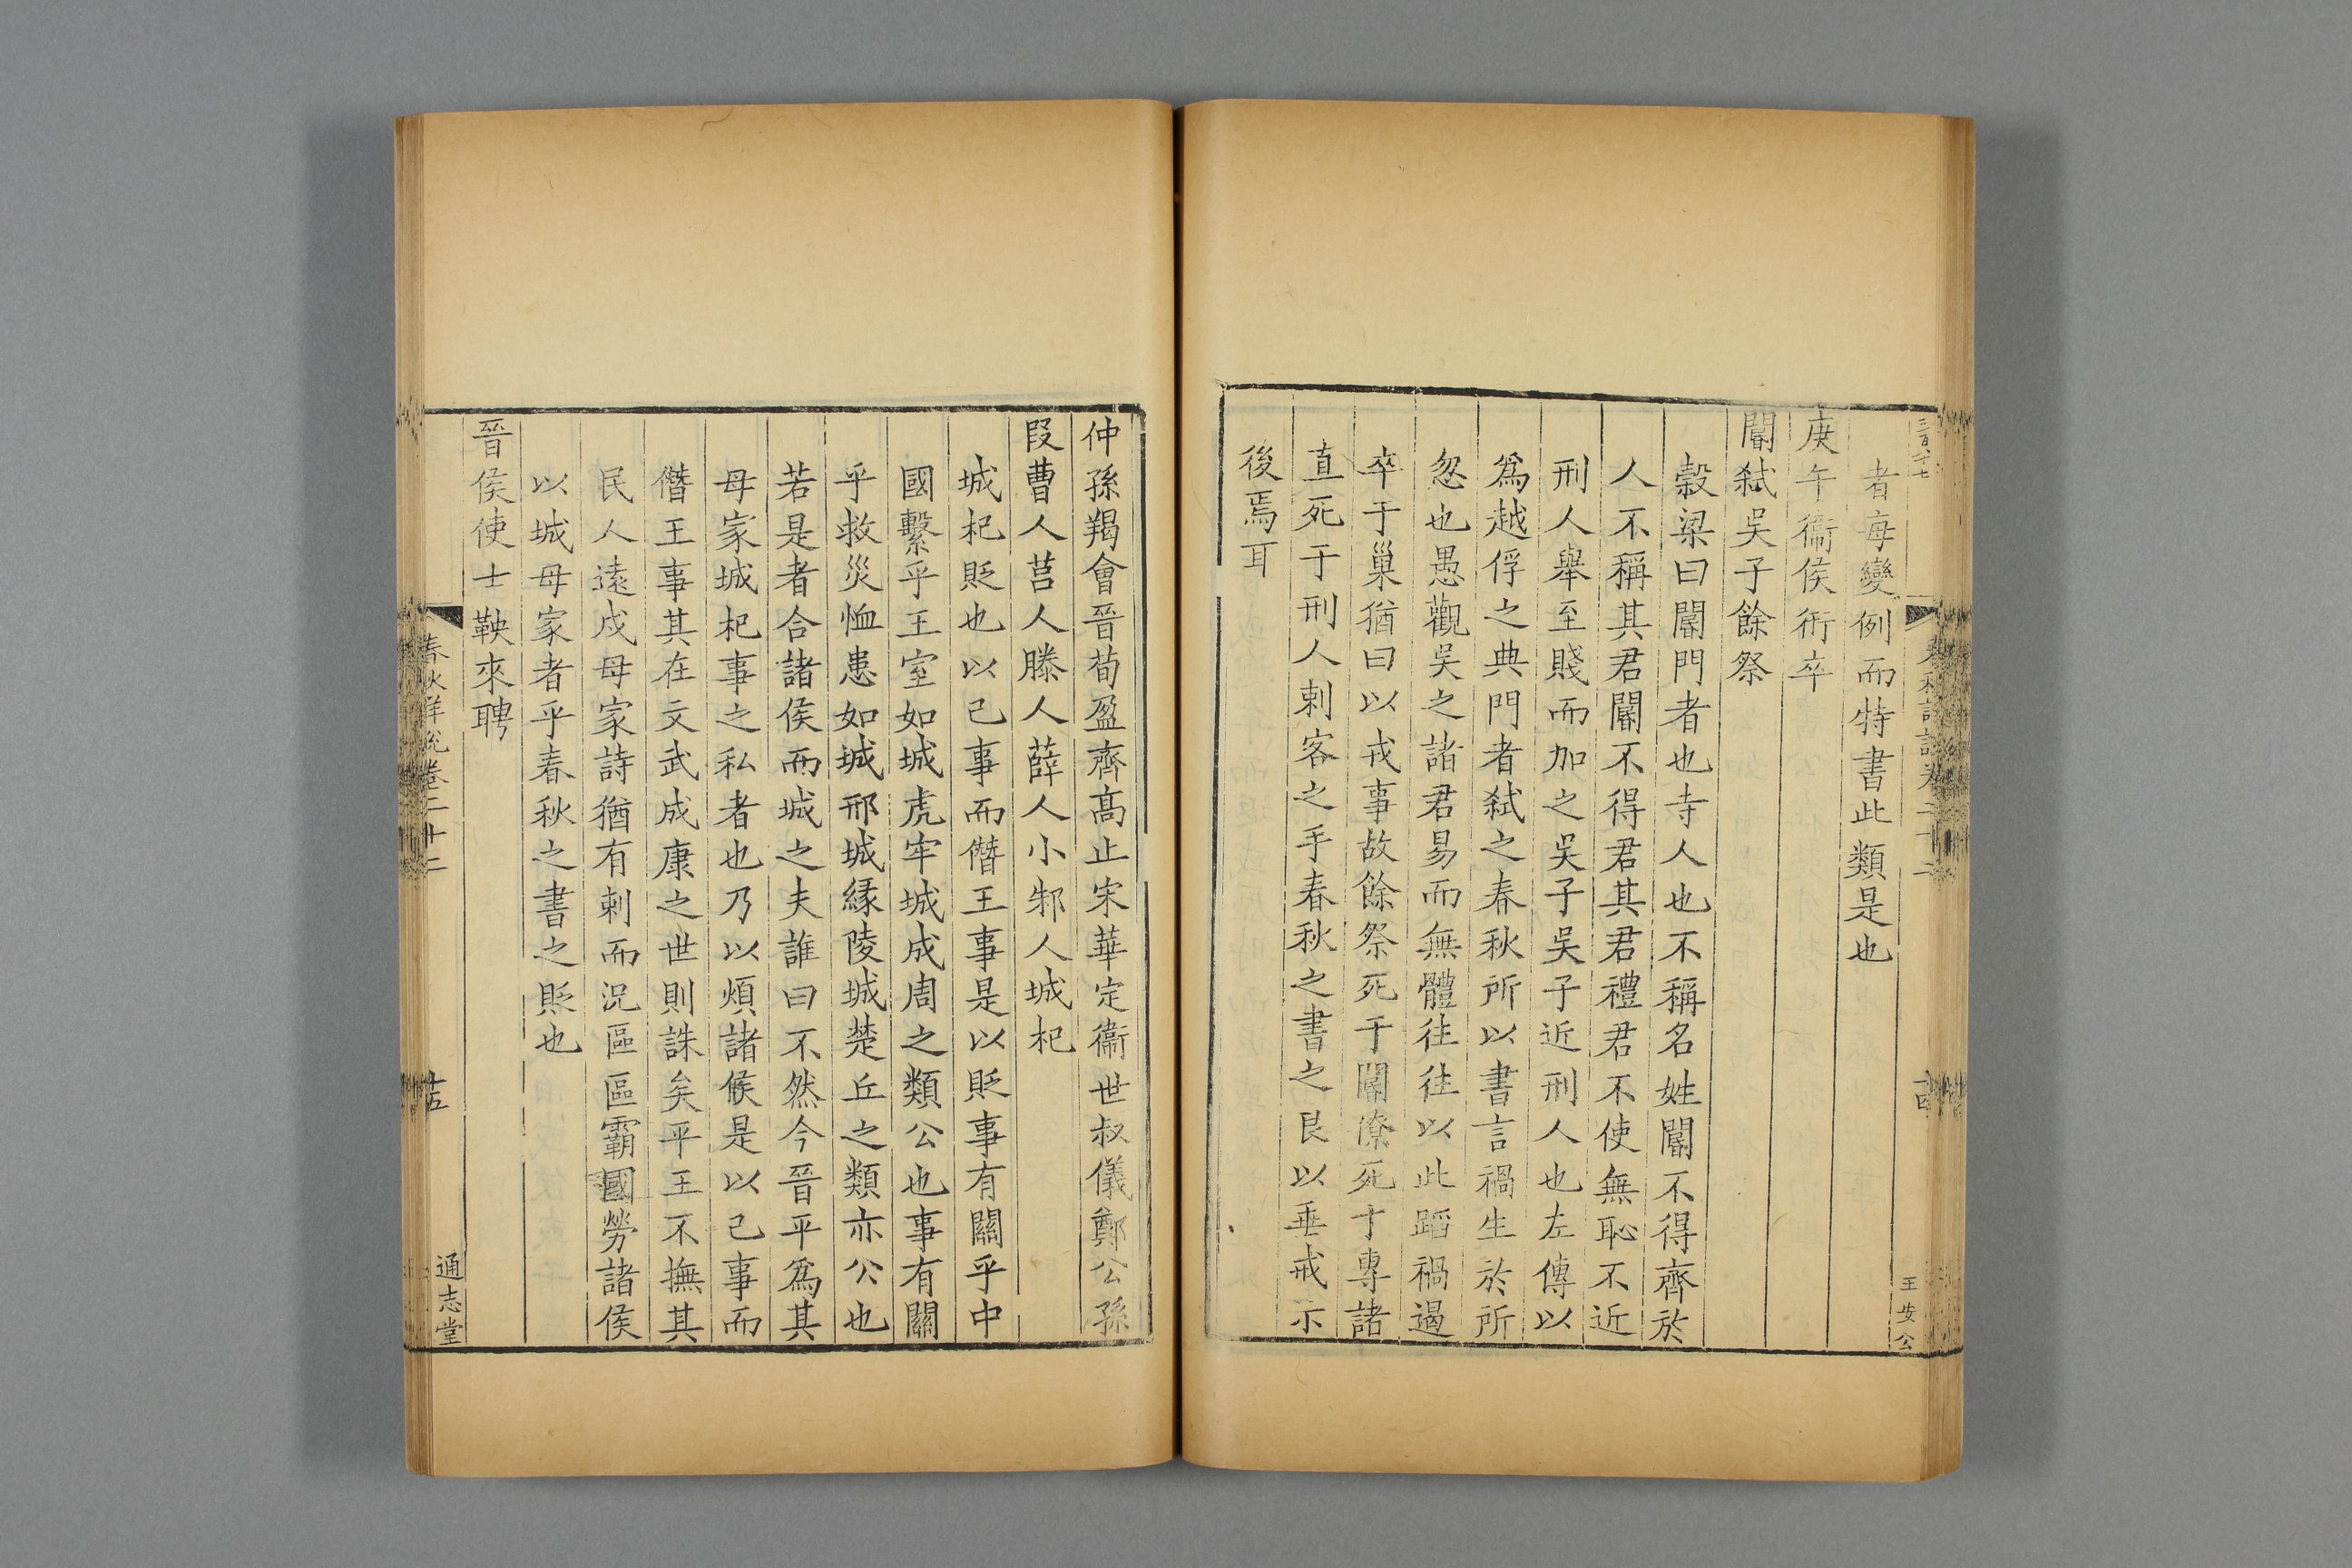 者每變例而特書此類是也
庚午衞侯衎卒
閽弑吳子餘祭
穀梁曰閽門者也寺人也不稱名姓閽不得齊於
人不稱其君閽不得君其君禮君不使無恥不近
刑人舉至賤而加之吳子吳子近刑人也左傳以
爲越俘之典門者弑之春秋所以書言禍生於所
忽也愚觀吳之諸君易而無體往往以此蹈禍遏
卒于巢猶曰以戎事故餘祭死于閽僚死于專諸
直死于刑人刺客之手春秋之書之良以垂戒示
後焉耳
王安公
仲孫羯會晉荀盈齊高止宋華定衞世叔儀鄭公孫
段曹人莒人滕人薛人小邾人城杞
城杞貶也以己事而僭王事是以貶事有關乎中
國繫乎王室如城虎牢城成周之類公也事有關
乎救災恤患如城邢城緣陵城楚丘之類亦公也
若是者合諸侯而城之夫誰曰不然今晉平爲其
母家城杞事之私者也乃以煩諸候是以己事而
僭王事其在文武成康之世則誅矣平王不撫其
民人遠戍母家詩猶有刺而況區區霸國勞諸侯
以城母家者乎春秋之書之貶也
晉侯使士鞅來聘
春秋詳說卷二十二
十五
通志堂